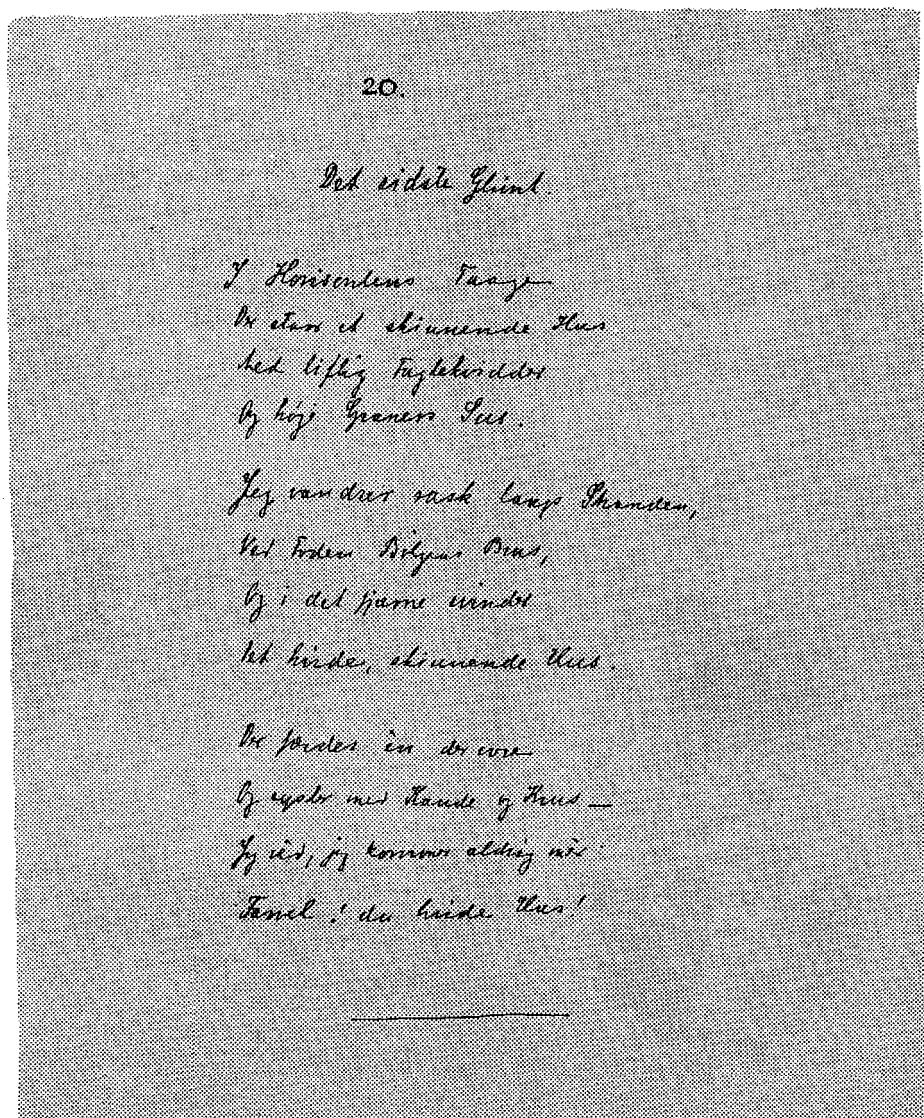 20.
Det sidste Glimt.
I Horisontens Taage
Der staar et skinnende Hus
Med liflig Fuglekvidder
Og høje Graners Sus.
Jeg vandrer rask langs Stranden,
Ved Foden Bølgens Brus,
Og i det fjærne svinder
Det hvide, skinnende Hus.
Der færdes én der ovre
Og sysler med Kande og Krus —
Jeg véd, jeg kommer aldrig mér
Farvel! du hvide Hus!